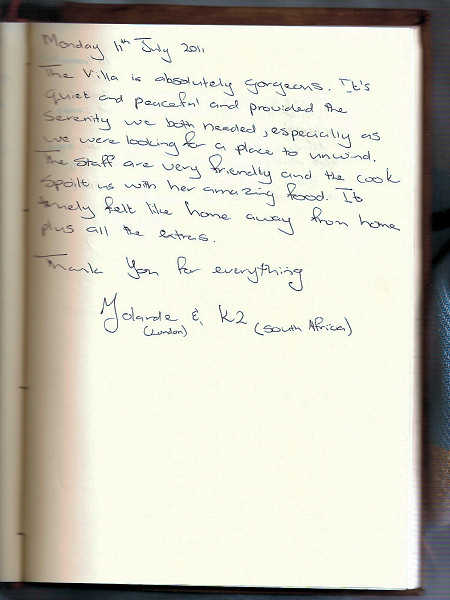 Monday 11th July 2011
The Villa is absolutely gorgeous. It's
quiet and peaceful and provided the
serenity we both needed, especially as
we were looking for a place to unwind.
The staff are very friendly and the cook
spoilt us with her amazing food. It
truely felt like home away from home
plus all the extras.
Thank You for everything
Yolande & K2
(London) (South Africa)